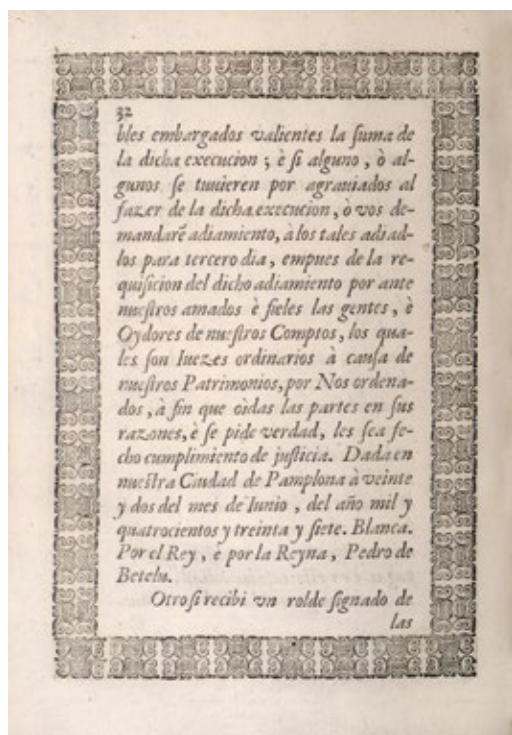 32
bles embargados valientes la suma de
la dicha execucion ; è si alguno , ò al-
gunos se tuuieren por agrauiados al
fazer de la dicha execucion , ò vos de-
mandarẽ adiamiento, à los tales adiad-
los para tercero dia , empues de la re-
quisicion del dicho adiamiento por ante
nuestros amados è fieles las gentes , è
Oydores de nuestros Comptos, los qua-
les son Iuezes ordinarios à causa de
nuestros Patrimonios, por Nos ordena-
dos , à fin que oidas las partes en sus
razones, è se pide verdad, les sea fe-
cho cumplimiento de justicia. Dada en
nuestra Ciudad de Pamplona à veinte
y dos del mes de Iunio , del año mil y
quatrocientos y treinta y siete. Blanca.
Por el Rey , è por la Reyna , Pedro de
Betelu.
Otrosi recibi vn rolde signado de
las